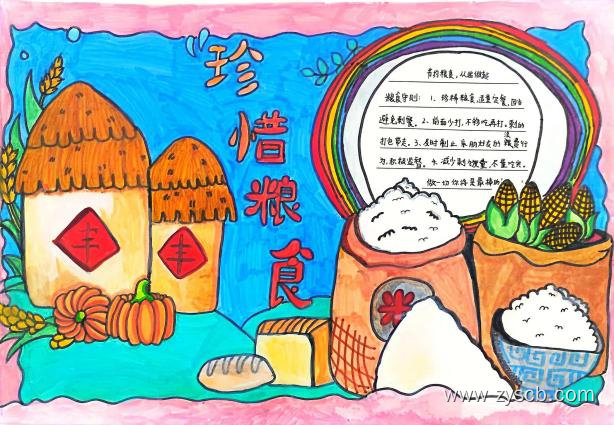 珍惜粮食
节约粮食，从我做起
粮食守则：1、珍稀粮食，适量
避免剩餐。2、前面少打，不够吃再打。剩的
打包带走。3、及时制止亲朋好友的浪费行
为，积极监督。4、减少剩 不量吃完。
做一切你将是最棒
丰
丰
米
www.zyscb.com